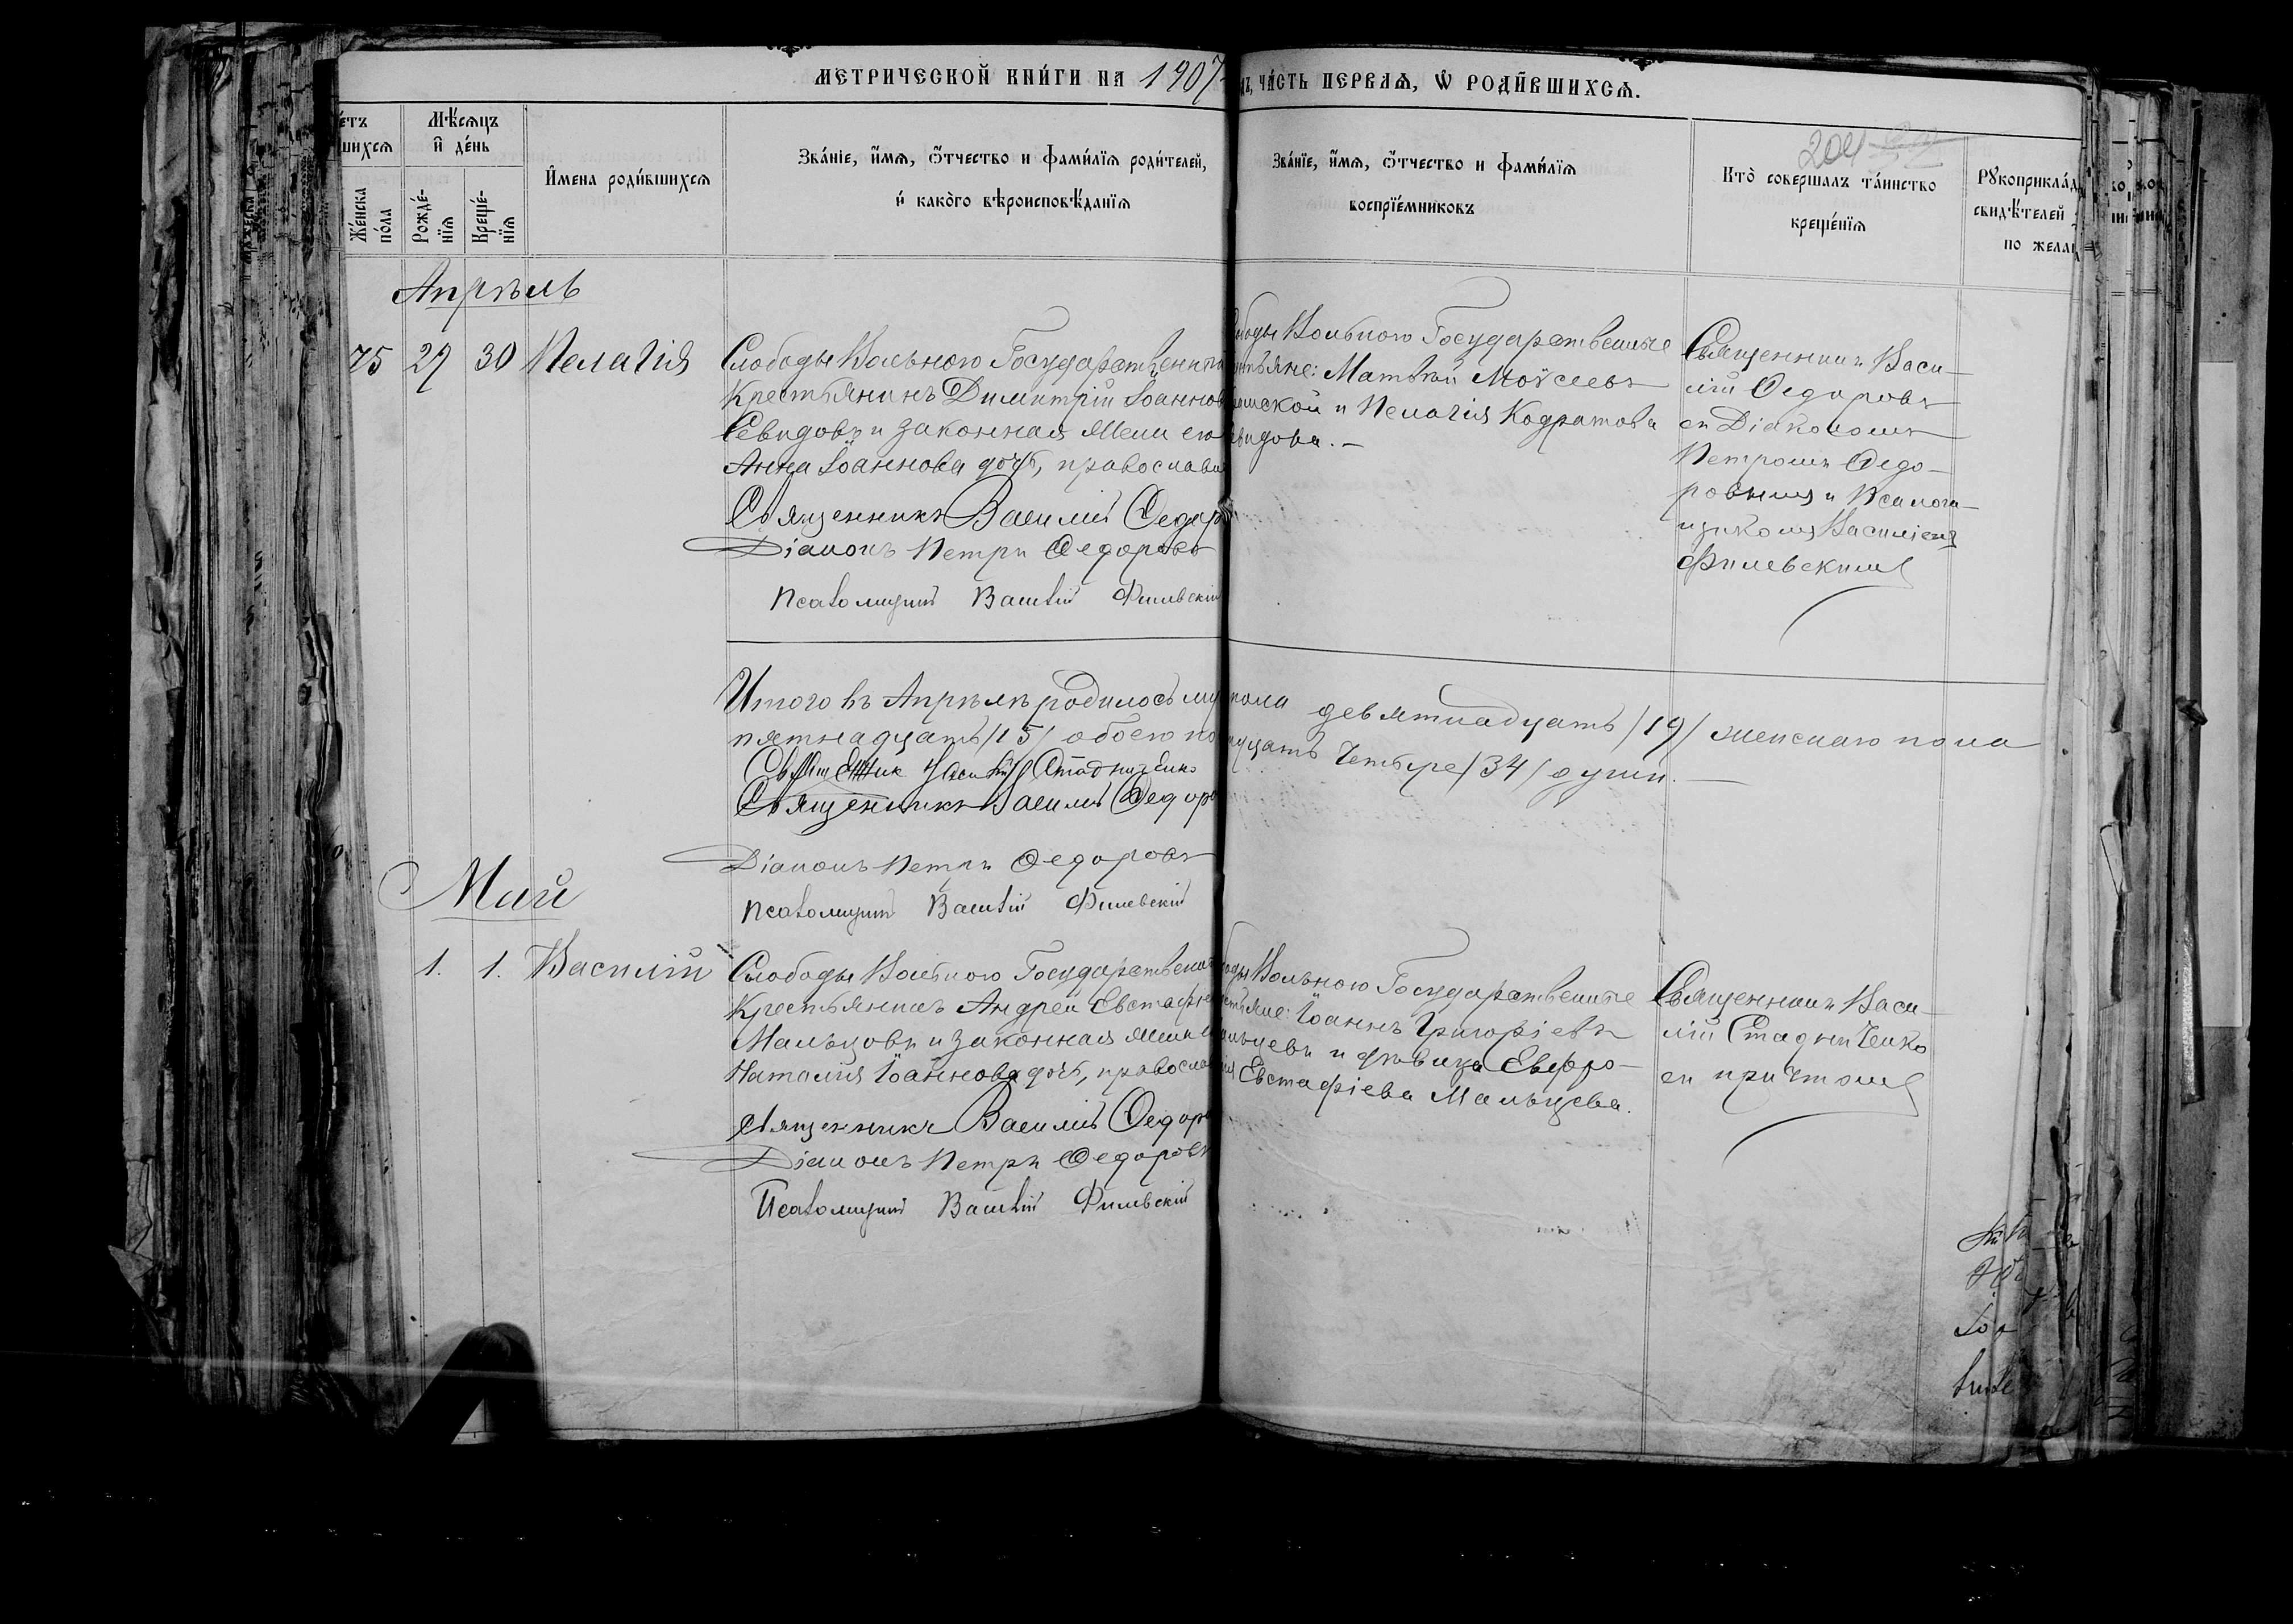 МЕТРИЧЕСКОЙ КНИ́ГИ НА 1907
ЧА́СТЬ ПЕРВАѦ, Ѡ РОДИ́ВШИХСѦ.
204
Мѣ́сѧцъ
и҆ де́нь
Же́нска
по́ла
Рожде́-
нїѧ
Креще́-
нїѧ
И҆мена роди́вшихсѧ
Зва́нїе, и҆́мѧ, ѻ҆́тчество и фами́лїѧ роди́телей,
и҆ како́го вѣроисповѣ́данїѧ
Зва́нїе, и҆́мѧ, ѻ҆́тчество и фами́лїѧ
воспрїе́мниковъ
Кто̀ соверша́лъ та́инство
креще́нїѧ
Рꙋкоприкла́д
свидѣ́телей
по жела
Апрѣль
75 27 30 Пелагія
Слободы Вольного Государственный
Крестьянинъ Димитрій Іоанновъ
Севидовъ и законная жена его
Анна Іоаннова дочь, православн
Священникъ Василій Федоро
Діаконъ Петръ Федоровъ
Псаломщикъ Василій Филевскій
Вольного Государственные
Матвѣй Моѵсеевъ
и Пелагія Кодратова
Священникъ Васи-
лій Федоровъ
съ Діакономъ
Петромъ Федо-
ровымъ и Псалом-
щикомъ Василіемъ
Филевскимъ
Итого въ Апрѣлѣ родилось муж
пола девятнадцать /19/ женскаго пола
пятнадцать /15/ обоего по
четыре /34/ души.
Священник Василій Стадниченко
Священникъ Василій Федоро
Діаконъ Петръ Федоровъ
Псаломщикъ Василій Филевскій
Май
1. 1. Василій
Слободы Вольного Государственный
Крестьянинъ Андрей Евстафіе
Мальцовъ и законная жена е
Наталія Іоаннова дочь, православ
Священникъ Василій Федоро
Діаконъ Петръ Федоровъ
Псаломщикъ Василій Филевскій
Вольного Государственные
Іоаннъ Григоріевъ
и дѣвица Евфро-
Евстафіева Мальцева.
Священникъ Васи-
лій Стадниченко
съ причтомъ